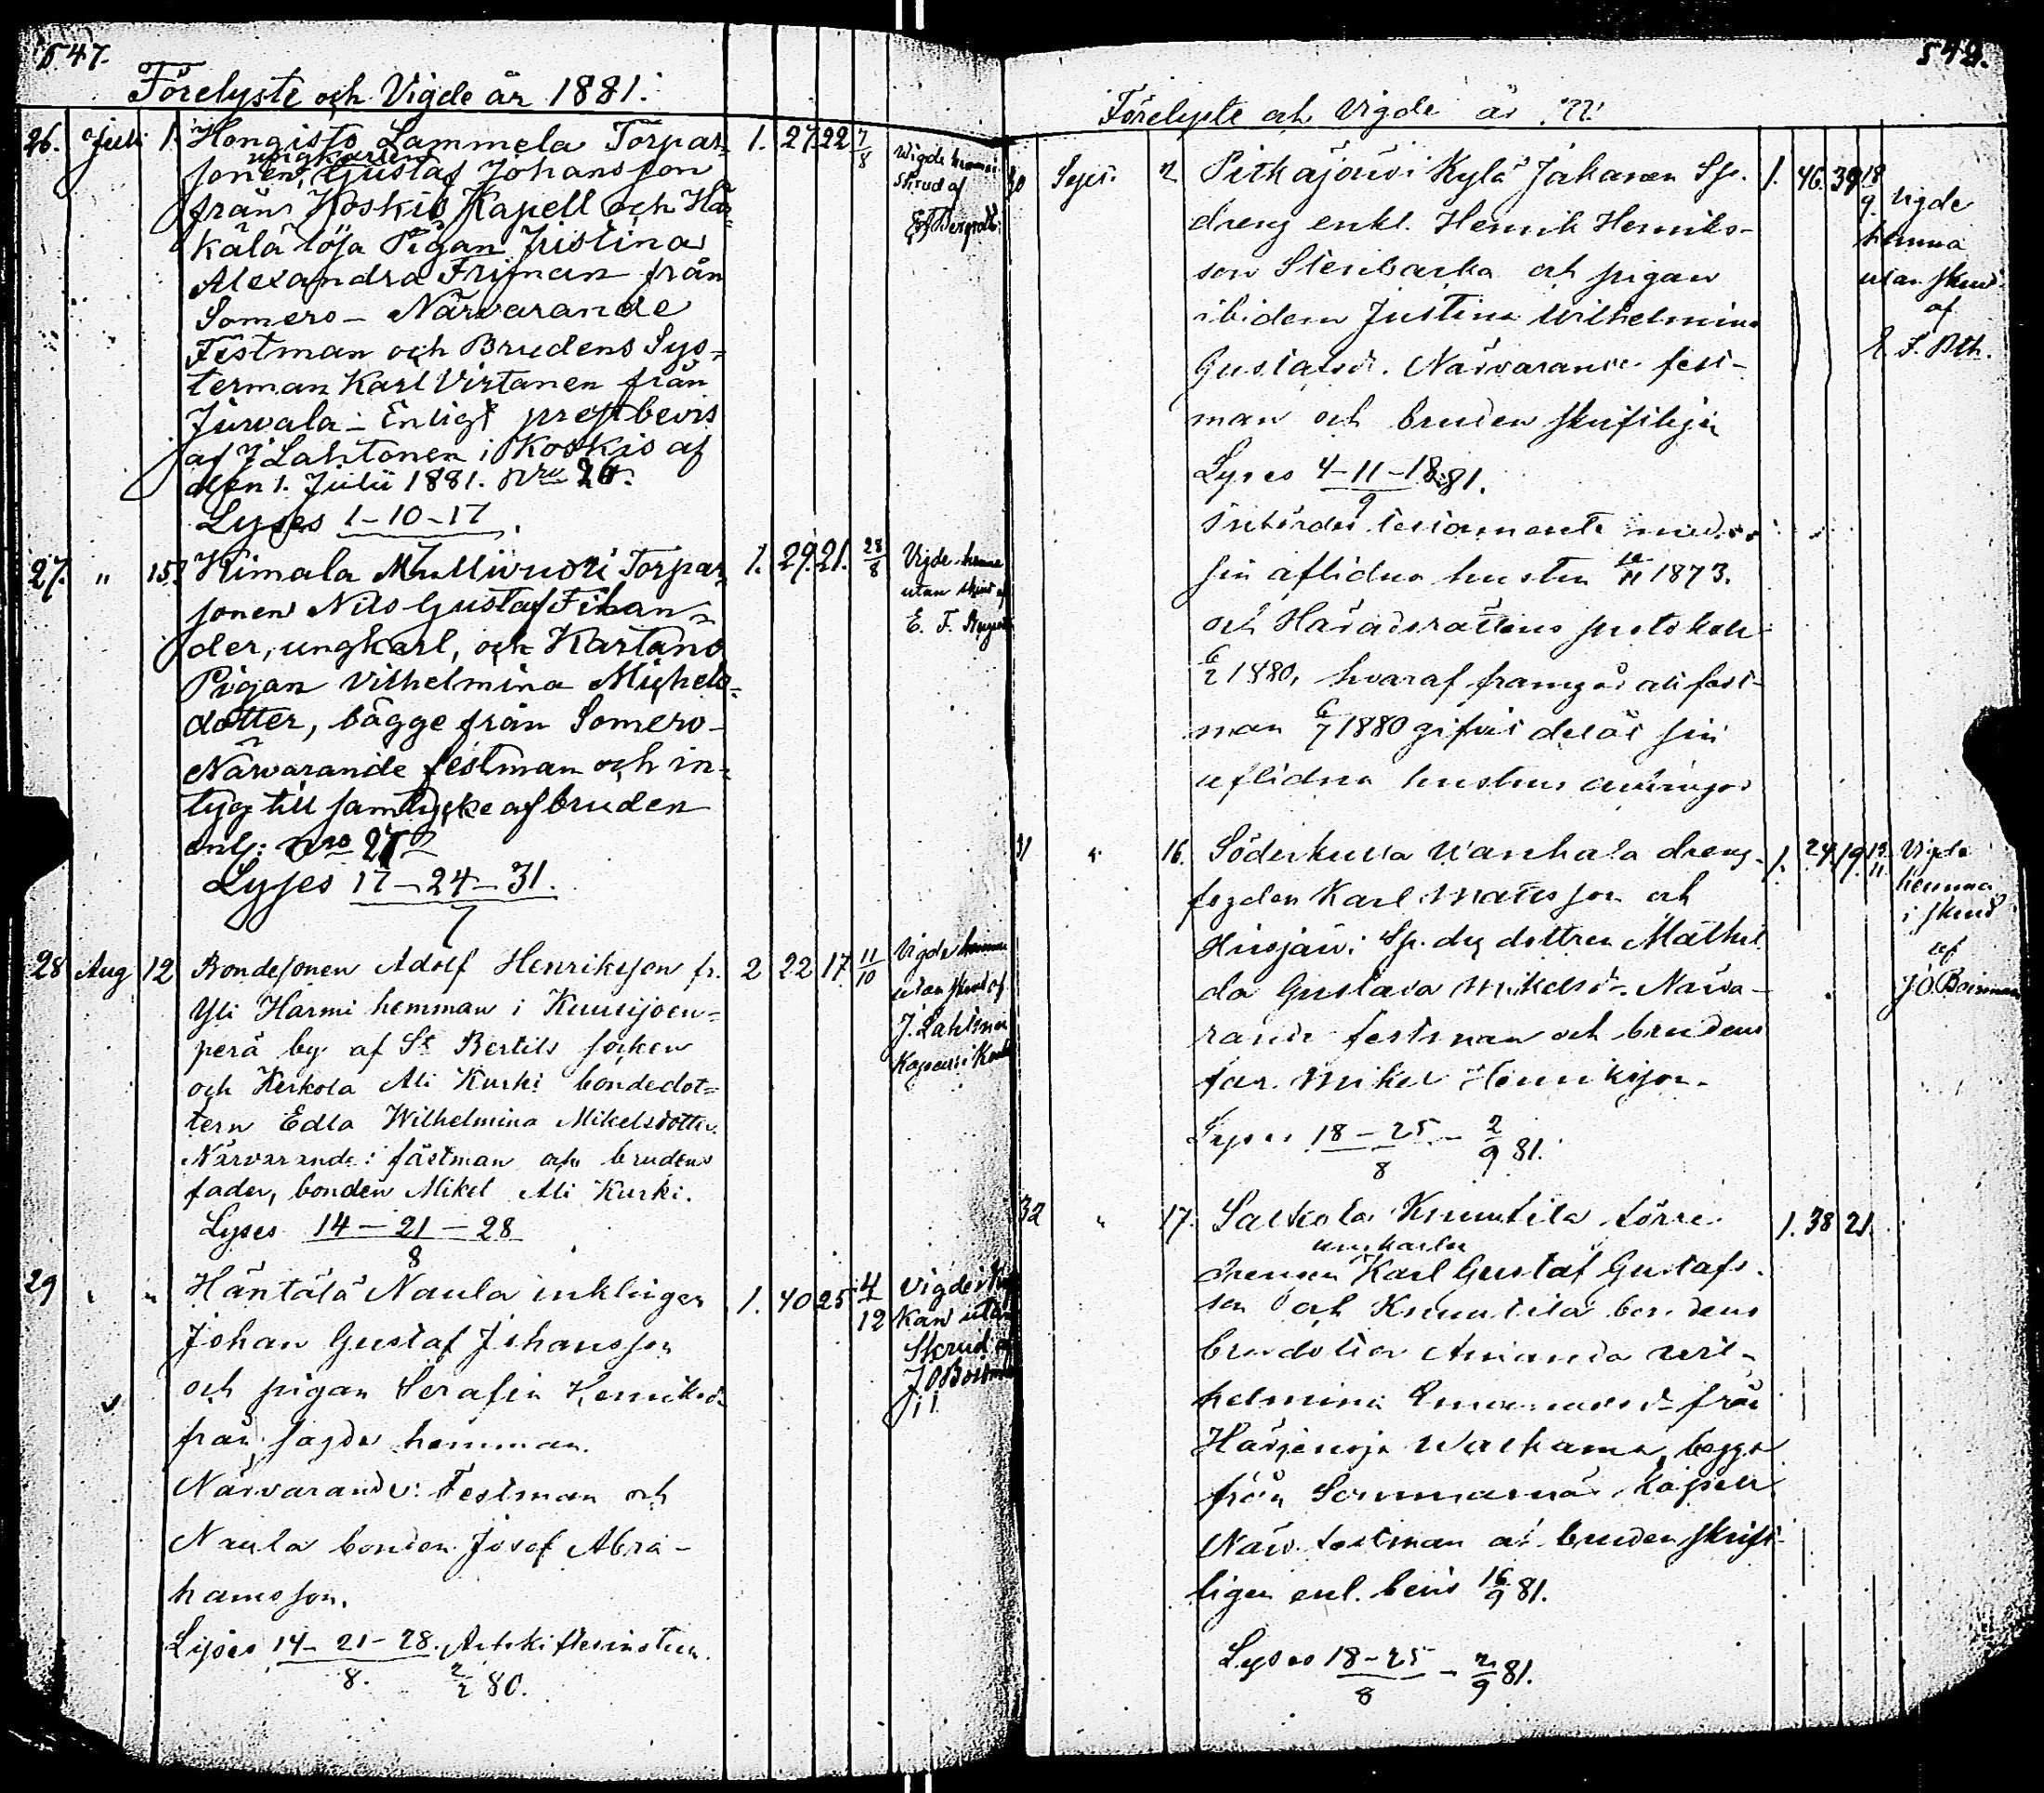 547.
Förelyste och Vigde är 1881.
26. Juli 1. Hongisto Lammela Torpar= 1. 27. 22 7/8
ungkarlen
sonen, Gustaf Johansson
från Koskis Kapell och Här=
kälä lösa Pigan Justina
Alexandra Friman från
Somero - Närvarande
Festman och Brudens Sys=
terman Karl Virtanen från
Jurvala - Enligt prestbevis
af J Lahtonen i Koskis af
den 1. Julii 1881. Nro 26.
Lyses 1-10-17
7
Vigde hemma
skrud af
27. " 15. Kimala Torpar= 1. 29. 21. 28/8
sonen Nils Gustaf Filan=
der, ungkarl, och Kartano
Pigan Vilhelmina Michels=
dotter, bägge från Somero -
Närvarande festman och in=
tyg till samtycke af bruden
enl: Nro 27
Lyses 17-24-31.
7
Vigde hemma
utan skrud af
E. F.
28 Aug 12 Bondesonen Adolf Henriksson fr. 2 22 17 11/10
Yli Harmi hemman i Kuusijoen=
perä by af St Bertils socken
och Kerkola Ali Kurki bondedot=
tern Edla Wilhelmina Mikelsdotter.
Närvarande: fästman och brudens
fader, bonden Mikel Ali Kurki.
Lyses 14-21-28
8
Vigde hemma
utan skrud af
J. Lahtonen
29 " " Häntälä Naula inhysingen 1. 40 25 4/12
Johan Gustaf Johansson
och pigan Serafin Henriksdr
från sagda hemman.
Närvarande: Festman och
Naula bonden Josef Abra-
hamsson.
Lyses 14-21-28.
8. 2/2 80.
Vigde i Kyr
kan utan
Skrud af
J O Boisman
548.
Förelyste och Vigde år
30 Sept. 2 Pitkäjärvi Kylä Jakanen Sp. 1. 46. 39 18/9
dreng enkl. Henrik Henriks-
son Stenbacka och pigan
ibidem Justina Wilhelmina
Gustafsdr. Närvarande fest-
man och bruden skriftligen
Lyses 4-11-18 81.
9
testamente med
sin aflidna hustru 1873.
och Häradsrättens protokoll
6/2 1880, hvaraf framgår att fest-
man 6/7 1880 gifvit delar sin
aflidna hustrus arfvingar
Vigde
hemma
utan skrud
af
E. F. Bth.
31 " 16. Söderkulla Wanhala dreng- 1. 24 19.
fogden Karl Matsson och
Hirsjärvi Sp. drg dottren Mathil
da Gustava Mikelsdr. Närva-
rande festman och brudens
far Mikel Henriksson.
Lyses 18-25 - 2/9 81.
8
Vigde
hemma
i skrud
af
J O. Boisman
32 " 17. Salkola Knuutila 1. 38 21.
ungkarlen
drengen Karl Gustaf Gustafs-
son och Knuutila bondens
Amanda Wil-
helmina från
Härjenoja Walkama, begge
från Sommarnäs Kapell
Närv. Festman och bruden skrift-
ligen enl. bevis 16/9 81.
Lyses 18-25 - 2/9 81.
8